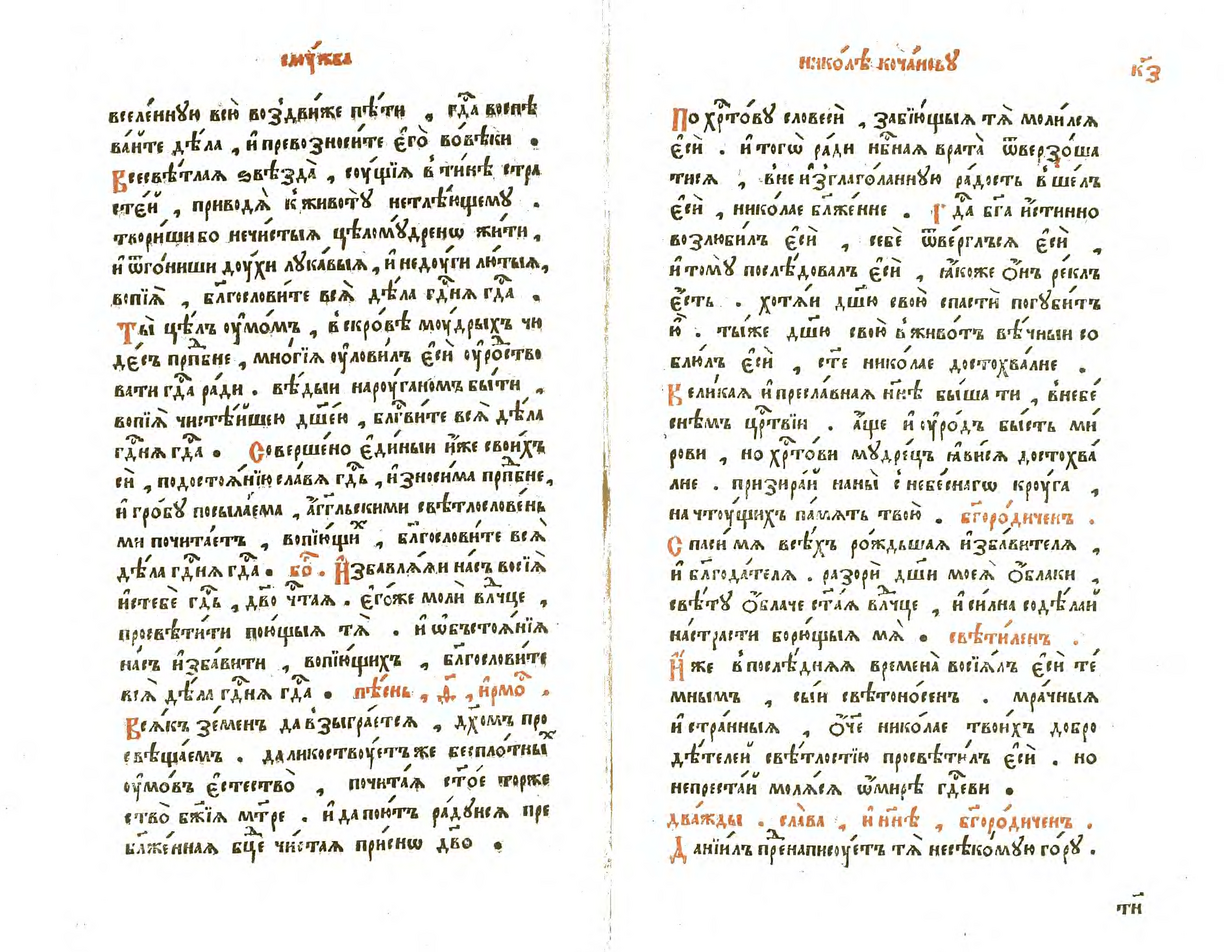 слꙋ́жба
вселе́ннꙋю всю̀ воздви́же пѣ́ти , гдⷭ҇а воспѣ
ва́йте дѣ́ла , и҆ превозноси́те є҆го̀ вовѣ́ки .
Всесвѣ́тлаѧ ѕвѣзда̀ , сꙋ́щїѧ в̾ ти́нѣ стра
сте́й , приводѧ̀ к̾ животꙋ̀ нетлѣ́ющемꙋ .
твори́ши бо нечи́стыѧ цѣломꙋ́дренѡ жи́ти ,
и҆ ѿго́ниши дꙋ́хи лꙋка́выѧ , и҆ недꙋ́ги лю́тыѧ ,
вопїѧ̀ , бл҃гослови́те всѧ̀ дѣ́ла гдⷭ҇нѧ гдⷭ҇а .
Ты̀ цѣ́лъ ᲂу҆мо́мъ , в̾ скро́вѣ мꙋ́дрыхъ чю
де́съ прпⷣбне , мно́гїѧ ᲂу҆лови́лъ є҆сѝ ᲂу҆ро́ство
вати гдⷭ҇а ра́ди . вѣ́дыи нарꙋ́ганомъ бы́ти ,
вопїѧ̀ чистѣ́йшею дш҃е́ю , блгⷭ҇ви́те всѧ̀ дѣ́ла
гдⷭ҇нѧ гдⷭ҇а . Соверше́но є҆ди́ныи и҆́же свои́хъ
си́ , по достоѧ́нїю сла́вѧ гдⷭ҇ь , и҆зноси́ма прпⷣбне ,
и҆ гро́бꙋ посыла́ема , а҆́гг҃льскими свѣтлослове́нь
ми почита́етъ , вопїю́щиⷯ , бл҃гослови́те всѧ̀
дѣ́ла гдⷭ҇нѧ гдⷭ҇а . бо҃ . И҆збавлѧ́ѧи на́съ восїѧ̀
и҆стебѐ гдⷭ҇ь , дв҃о чтⷭ҇аѧ . є҆го́же молѝ влⷣчце ,
просвѣти́ти пою́щыѧ тѧ̀ . и҆ ѡ҆бъстоѧ́нїѧ
на́съ и҆зба́вити , вопїю́щихъ , бл҃гослови́те
всѧ̀ дѣ́ла гдⷭ҇нѧ гдⷭ҇а . пѣ́снь , ѳ҃ , и҆рмо́ .
Всѧ́къ зе́менъ да взыгра́етсѧ , дх҃омъ про
свѣща́емъ . да ликоствꙋ́етъ же беспло́тныⷯ
ᲂу҆мо́въ є҆стество̀ , почита́ѧ ст҃о́е торже
ство̀ бж҃їѧ мт҃ре . и҆ да пою́тъ ра́дꙋисѧ пре
бл҃же́ннаѧ бц҃е чи́стаѧ при́снѡ дв҃о .
нико́лѣ коча́новꙋ
к҃з
По хрⷭ҇то́вꙋ словесѝ , заби́ющыѧ тѧ̀ моли́лсѧ
є҆сѝ . и҆ тогѡ̀ ра́ди нбⷭ҇наѧ врата̀ ѿверзо́ша
тисѧ , в̾ неи҆зглаго́ланнꙋю ра́дость в̾ше́лъ
є҆сѝ , нико́лае бл҃же́нне . Гдⷭ҇а бг҃а и҆́стинно
возлюби́лъ є҆сѝ , себѐ ѿве́рглъсѧ є҆сѝ ,
и҆ томꙋ̀ послѣ́довалъ є҆сѝ , ꙗ҆́коже ѻ҆́нъ ре́клъ
є҆́сть . хотѧ́и дш҃ю свою̀ спастѝ погꙋби́тъ
ю҆̀ . ты́же дш҃ю свою̀ в̾ живо́тъ вѣ́чныи со
блю́лъ є҆сѝ , ст҃е нико́лае достохва́лне .
Вели́каѧ и҆ пресла́внаѧ нн҃ѣ бы́ша ти , в̾ небе́
снѣмъ црⷭ҇твїи . а҆́ще и҆ ᲂу҆ро́дъ бы́сть ми́
рови , но хрⷭ҇то́ви мꙋдре́цъ ꙗ҆ви́сѧ достохва́
лне . призира́й на ны̀ с̾ небе́снагѡ крꙋ́га ,
на чтꙋ́щихъ па́мѧть твою̀ . бг҃оро́диченъ .
Спаси́ мѧ всѣ́хъ ро́ждьшаѧ и҆зба́вителѧ ,
и҆ бл҃года́телѧ . разорѝ дш҃и моеѧ̀ ѻ҆́блаки ,
свѣ́тꙋ ѻ҆́блаче ст҃а́ѧ влⷣчце , и҆ си́лна содѣ́лай
на стра́сти борю́щыѧ мѧ̀ . свѣти́ленъ .
И҆́же в̾ послѣ́днѧѧ времена̀ восїѧ́лъ є҆сѝ те́
мнымъ , сы́и свѣтоно́сен . мра́чныѧ
и҆ стра́нныѧ , ѻ҆́ч҃е нико́лае твои́хъ добро
дѣ́телей свѣ́тлостїю просвѣти́лъ є҆сѝ . но
непреста́й молѧ́сѧ ѡ҆ ми́рѣ гдⷭ҇еви .
два́жды . сла́ва , и҆ нн҃ѣ , бг҃оро́диченъ .
Данїи́лъ пре́написꙋетъ тѧ̀ несѣко́мꙋю го́рꙋ .
ти҃